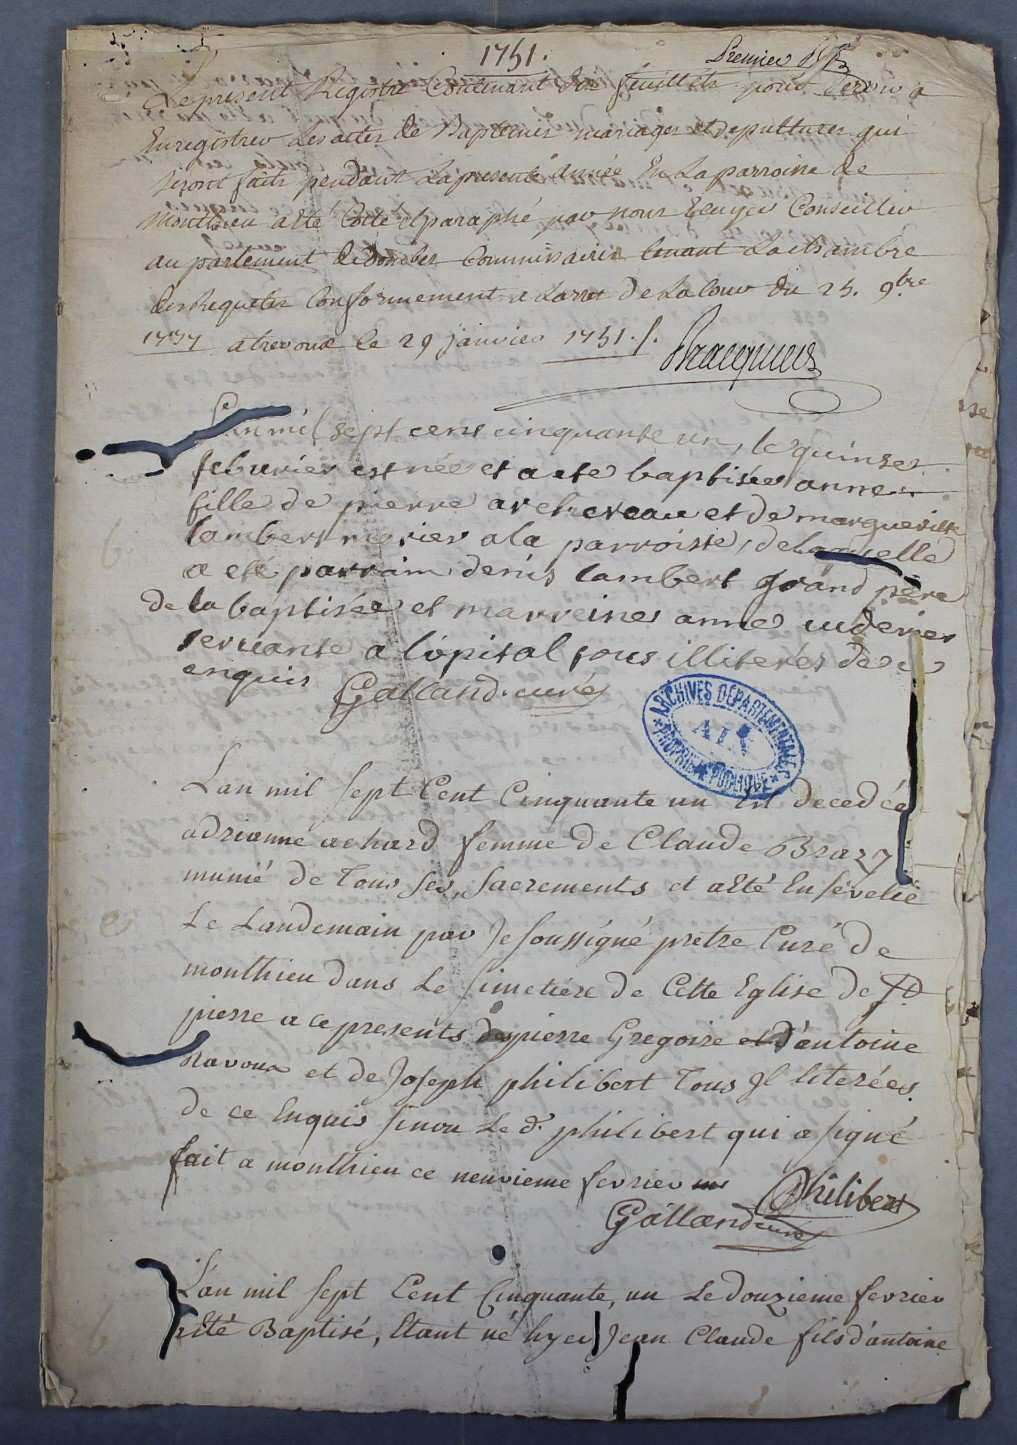 1751.
Premier
Le present Registre Contenant six feuillets pour servir a
Enregistrer Les actes de Baptemes mariages et sepultures qui
seront faits pendant La presente année En La parroisse de
monthieu a eté Cotté et paraphé par nous Ecuyer Conseiller
au parlement de Dombes Commissaire tenant La chambre
des Requetes Conformement a Larret de La Cour du 25. 9bre
a trevoux le 29 janvier 1751.
L'an mil sept cens cinquante un, le quinse
feburier est née et a eté baptisée anne
fille de pierre archereau et de marguerite
lambert mariés a la parroisse, de Laquelle
a eté parrain denis lambert grand père
de la baptisée et marreine anne
servante a l'opital tous illiterés de ce
enquis Galland curé
ARCHIVES DEPARTEMENTALES
AIN
PROPRIETE PUBLIQUE
L'an mil sept Cent Cinquante un Est decedée
adrianne achard femme de Claude Brazy
munié de Tous ses Sacrements et a eté Ensevelie
Le Landemain par Je soussigné pretre Curé de
monthieu dans Le Cimetiére de Cette Eglise de St
pierre a ce presents de pierre Gregoire et d'antoine
Ravoux et de Joseph philibert Tous Il literées
de ce Enquis sinon Le d. philibert qui a signé
fait a monthieu ce neuvieme fevrier
Philibert
Galland curé
L'an mil sept Cent Cinquante, un Le douzieme fevrier
a Eté Baptisé, Etant né hyer Jean Claude fils d'antoine